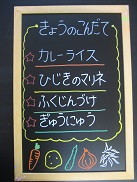 きょうのこんだて
☆カレーライス
☆ひじきのマリネ
☆ふくじんづけ
☆ぎゅうにゅう